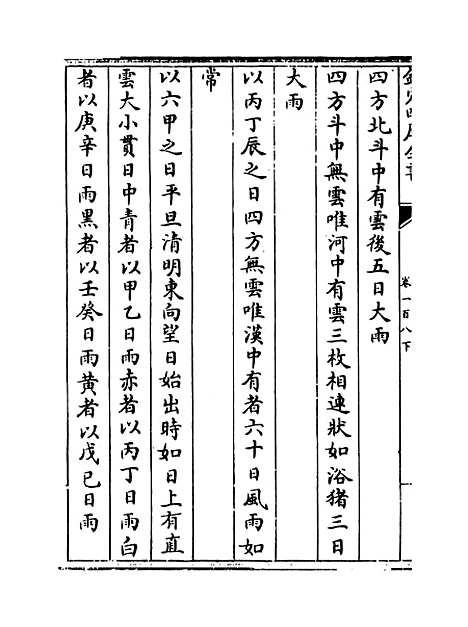 欽定四庫全書
卷一百八下
四方北斗中有雲後五日大雨
四方斗中無雲唯河中有雲三枚相連狀如浴猪三日
大雨
以丙丁辰之日四方無雲唯漢中有者六十日風雨如
常
以六甲之日平旦清明東向望日始出時如日上有直
雲大小貫日中青者以甲乙日雨赤者以丙丁日雨白
者以庚辛日雨黑者以壬癸日雨黄者以戊己日雨